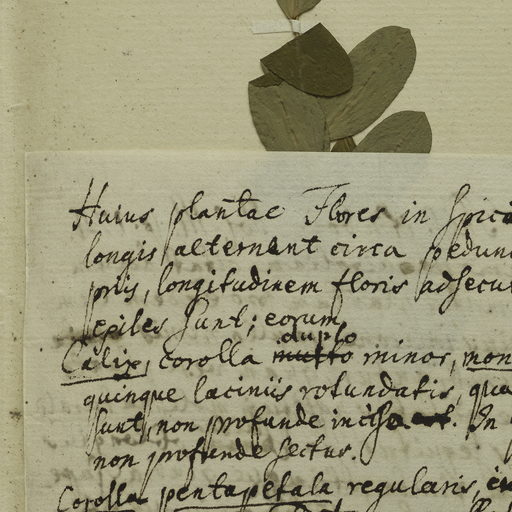 Huius plantae Flores in Spic
longis alternant circa pedun
priis, longitudinem floris adsecu
epiles sunt; eorum
duplo
Calix, corolla multo minor, mon
quinque laciniis rotundatis, qua
sunt, non profunde incisa est. In
non profunde sectus.
Corolla pentapetala regularis,